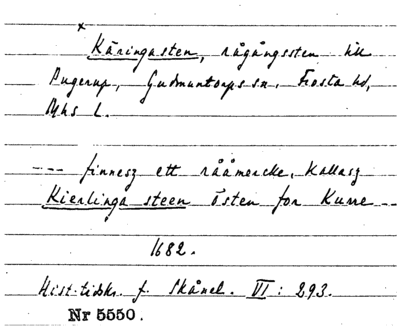 x
Käringasten, rågångssten till
Pugerup, Gudmuntorps sn. Frosta hd,
Mhs L.
--- finnesz ett rååmercke, kallasz
Kierlinga steen Östen for Kurre --
1682.
Hist. tidskr. f. Skånel. VI: 293.
Nr 5550.